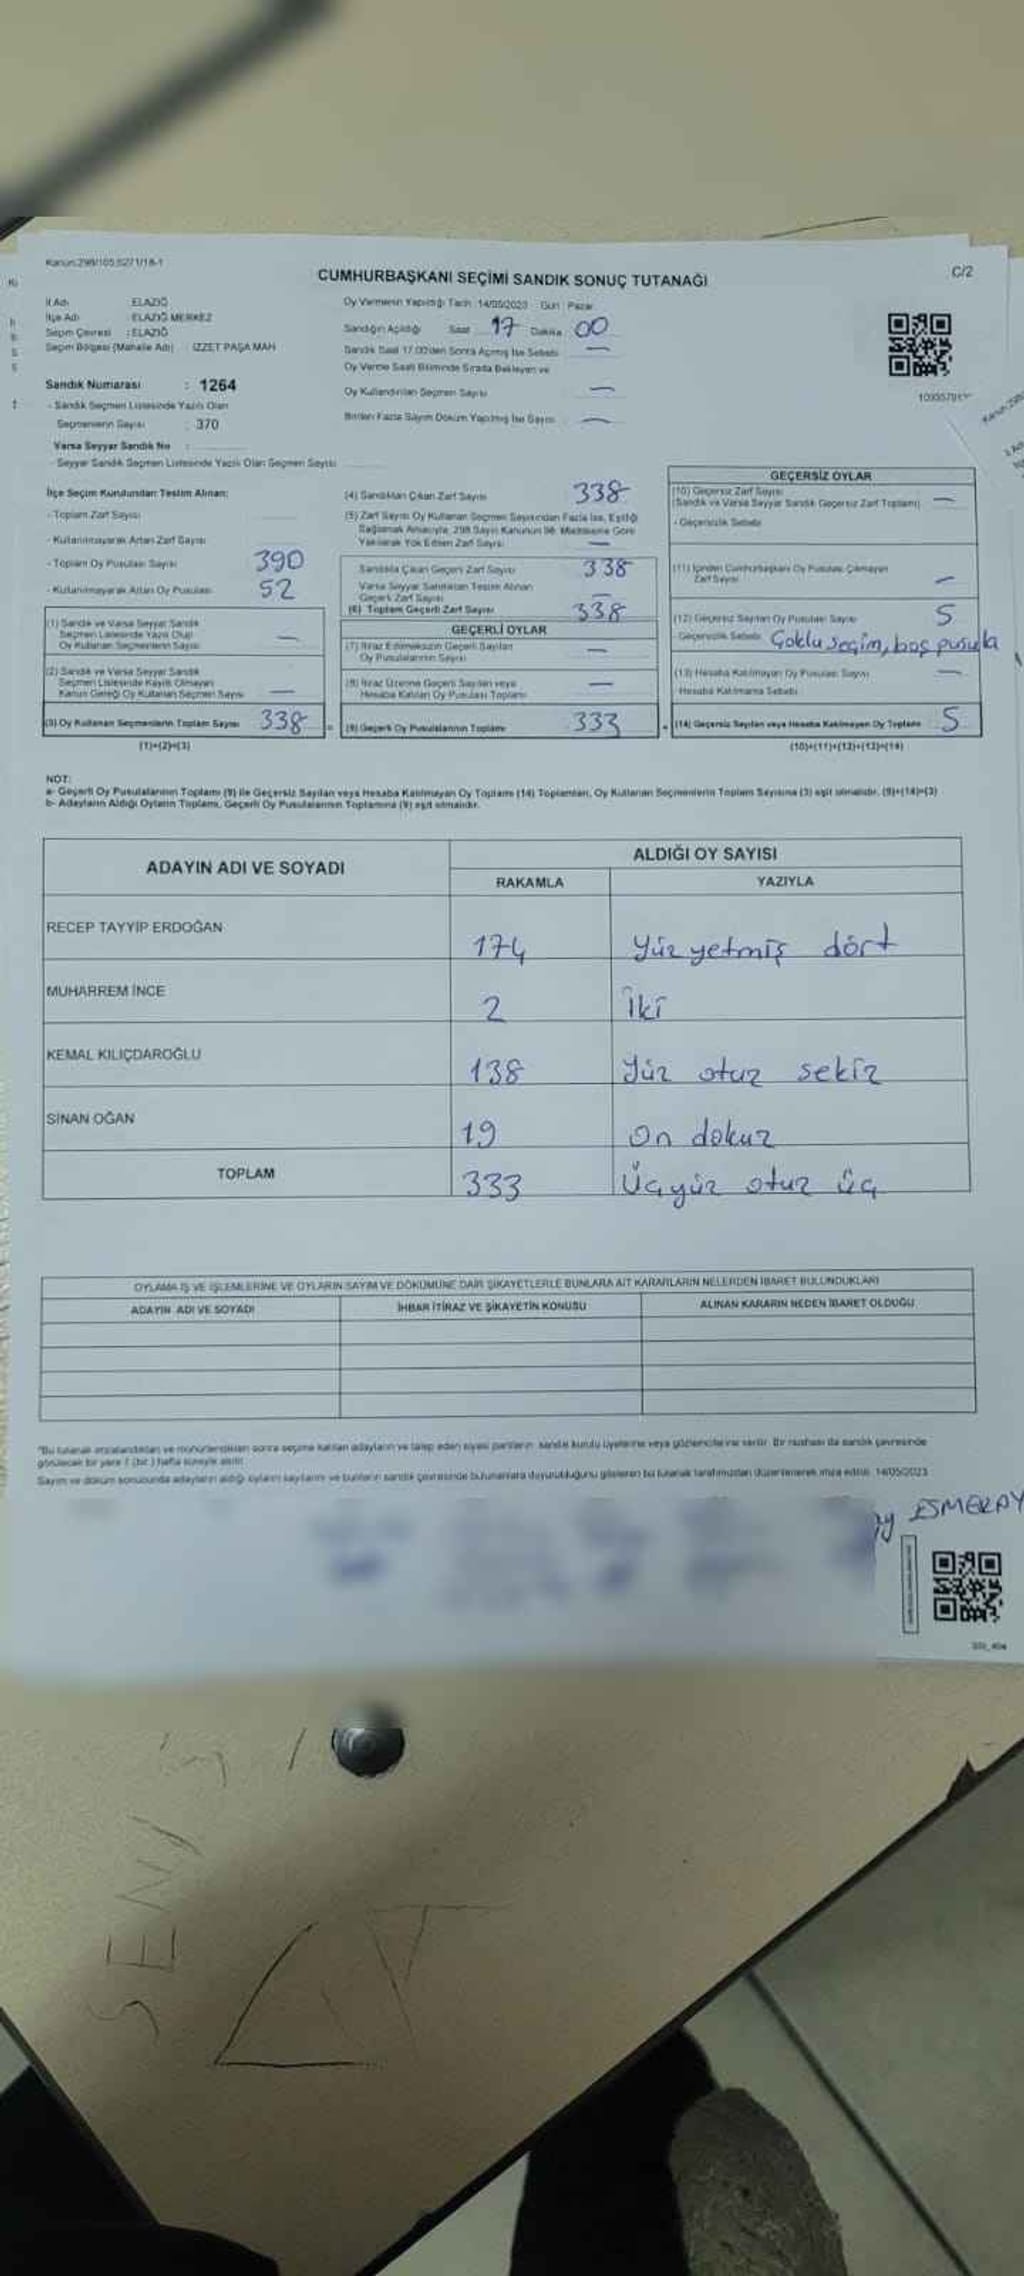 Kanun:298/105,6271/18-1
CUMHURBAŞKANI SEÇİMİ SANDIK SONUÇ TUTANAĞI
C/2
İl Adı ELAZIĞ
İlçe Adı ELAZIĞ MERKEZ
Seçim Çevresi : ELAZIĞ
Seçim Bölgesi (Mahalle Adı) : İZZET PAŞA MAH
Sandık Numarası : 1264
- Sandık Seçmen Listesinde Yazılı Olan
Seçmenlerin Sayısı : 370
Varsa Seyyar Sandık No :
- Seyyar Sandık Seçmen Listesinde Yazılı Olan Seçmen Sayısı
Oy Vermenin Yapıldığı Tarih : 14/05/2023 Gün : Pazar
Sandığın Açıldığı Saat 17 Dakika 00
Sandık Saat 17.00'den Sonra Açılmış İse Sebebi —
Oy Verme Saati Bitiminde Sırada Bekleyen ve
Oy Kullandırılan Seçmen Sayısı —
Birden Fazla Sayım Döküm Yapılmış İse Sayısı —
İlçe Seçim Kurulundan Teslim Alınan:
- Toplam Zarf Sayısı
- Kullanılmayarak Artan Zarf Sayısı
- Toplam Oy Pusulası Sayısı 390
- Kullanılmayarak Artan Oy Pusulası 52
(1) Sandık ve Varsa Seyyar Sandık
Seçmen Listesinde Yazılı Olup
Oy Kullanan Seçmenlerin Sayısı —
(2) Sandık ve Varsa Seyyar Sandık
Seçmen Listesinde Kayıtlı Olmayan
Kanun Gereği Oy Kullanan Seçmen Sayısı —
(3) Oy Kullanan Seçmenlerin Toplam Sayısı 338
(1)+(2)=(3)
(4) Sandıktan Çıkan Zarf Sayısı 338
(5) Zarf Sayısı Oy Kullanan Seçmen Sayısından Fazla İse, Eşitliği
Sağlamak Amacıyla, 298 Sayılı Kanunun 98. Maddesine Göre
Yakılarak Yok Edilen Zarf Sayısı —
Sandıkta Çıkan Geçerli Zarf Sayısı 338
Varsa Seyyar Sandıktan Teslim Alınan
Geçerli Zarf Sayısı —
(6) Toplam Geçerli Zarf Sayısı 338
GEÇERLİ OYLAR
(7) İtiraz Edilmeksizin Geçerli Sayılan
Oy Pusulalarının Sayısı —
(8) İtiraz Üzerine Geçerli Sayılan veya
Hesaba Katılan Oy Pusulası Toplamı —
(9) Geçerli Oy Pusulalarının Toplamı 333
GEÇERSİZ OYLAR
(10) Geçersiz Zarf Sayısı
(Sandık ve Varsa Seyyar Sandık Geçersiz Zarf Toplamı) —
- Geçersizlik Sebebi
(11) İçinden Cumhurbaşkanı Oy Pusulası Çıkmayan
Zarf Sayısı —
(12) Geçersiz Sayılan Oy Pusulası Sayısı 5
- Geçersizlik Sebebi Çoklu seçim, boş pusula
(13) Hesaba Katılmayan Oy Pusulası Sayısı —
Hesaba Katılmama Sebebi
(14) Geçersiz Sayılan veya Hesaba Katılmayan Oy Toplamı 5
(10)+(11)+(12)+(13)=(14)
NOT:
a- Geçerli Oy Pusulalarının Toplamı (9) ile Geçersiz Sayılan veya Hesaba Katılmayan Oy Toplamı (14) Toplamları, Oy Kullanan Seçmenlerin Toplam Sayısına (3) eşit olmalıdır. (9)+(14)=(3)
b- Adayların Aldığı Oyların Toplamı, Geçerli Oy Pusulalarının Toplamına (9) eşit olmalıdır.
ADAYIN ADI VE SOYADI
ALDIĞI OY SAYISI
RAKAMLA YAZIYLA
RECEP TAYYİP ERDOĞAN 174 Yüz yetmiş dört
MUHARREM İNCE 2 İki
KEMAL KILIÇDAROĞLU 138 Yüz otuz sekiz
SİNAN OĞAN 19 On dokuz
TOPLAM 333 Üçyüz otuz üç
OYLAMA İŞ VE İŞLEMLERİNE VE OYLARIN SAYIM VE DÖKÜMÜNE DAİR ŞİKAYETLERLE BUNLARA AİT KARARLARIN NELERDEN İBARET BULUNDUKLARI
ADAYIN ADI VE SOYADI İHBAR İTİRAZ VE ŞİKAYETİN KONUSU ALINAN KARARIN NEDEN İBARET OLDUĞU
"Bu tutanak imzalandıktan ve mühürlendikten sonra seçime katılan adayların ve talep eden siyasi partilerin sandık kurulu üyelerine veya gözlemcilerine verilir. Bir nüshası da sandık çevresinde
görülecek bir yere 1 (bir) hafta süreyle asılır.
Sayım ve döküm sonucunda adayların aldığı oyların sayılarını ve bunların sandık çevresinde bulunanlara duyurulduğunu gösteren bu tutanak tarafımızdan düzenlenerek imza edildi. 14/05/2023
ESMERAY
SEN